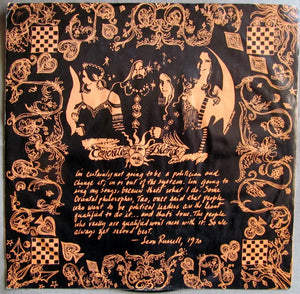 I'm certainly not going to be a politician and
change it, I'm out of the system. I'm going to
sing my songs, because that's what I do. Some
Oriental philosopher, Tao, once said that people
who want to be political leaders are the least
qualified to do it... and that's true. The people
who really are qualified won't mess with it. So we
always get second best.
— Leon Russell, 1970